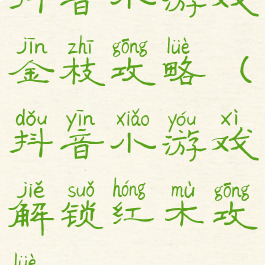 抖音小游戏
jīn zhī gōng lüè
金枝攻略（
dǒu yīn xiǎo yóu xì
抖音小游戏
jiě suǒ hóng mù gōng
解锁红木攻
lüè